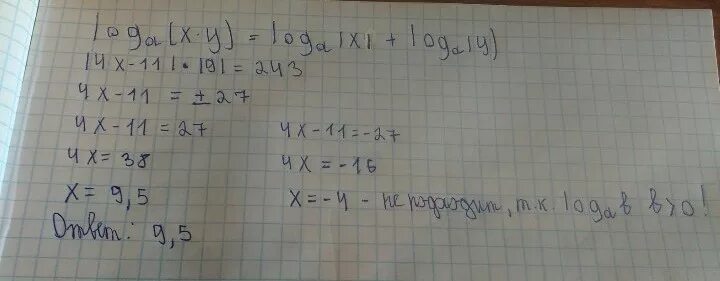 logₐ(x·y) = logₐ|x| + logₐ|y|
|4x-11|·|9|=243
4x-11 = ±27
4x-11=27 4x-11=-27
4x=38 4x=-16
x=9,5 x=-4 - не подходит, т.к. logₐв в>0!
Ответ: 9,5